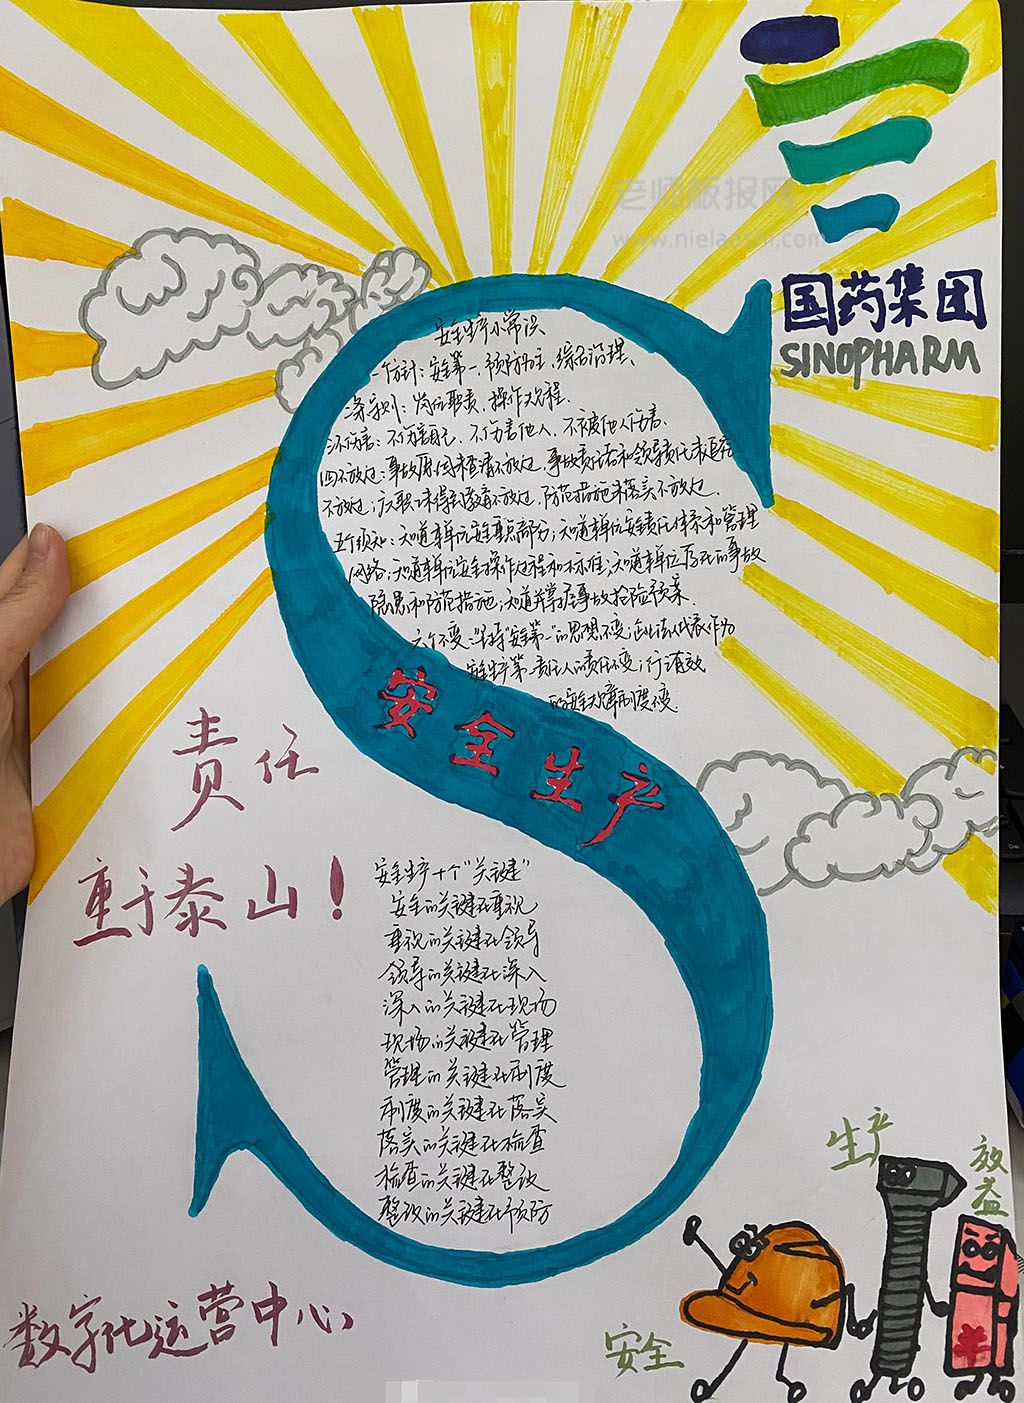 老师板报网
www.nielaoshi.com
国药集团
SINOPHARM
安全生产小常识
一个方针：安全第一、预防为主、综合治理、
二条原则：岗位职责、操作规程、
三不伤害：不伤害自己、不伤害他人、不被他人伤害、
四不放过：事故原因未查清不放过、事故责任者和领导责任未追究
不放过；广大职工未得到教育不放过、防范措施未落实不放过、
五个须知：知道本单位安全重点部分；知道本单位安全责任体系和管理
网络；知道本单位安全操作规程和标准；知道本单位存在的事故
隐患和防范措施；知道并掌握事故抢险预案、
六个不变：坚持"安全第一"的思想不变；企业法人代表作为
安全生产第一责任人的责任不变；行之有效
的安全规章制度不变、
安全生产
责任
重于泰山！
安全生产十个"关键"
安全的关键在重视
重视的关键在领导
领导的关键在深入
深入的关键在现场
现场的关键在管理
管理的关键在制度
制度的关键在落实
落实的关键在检查
检查的关键在整改
整改的关键在预防
生产
效益
安全
数字化运营中心